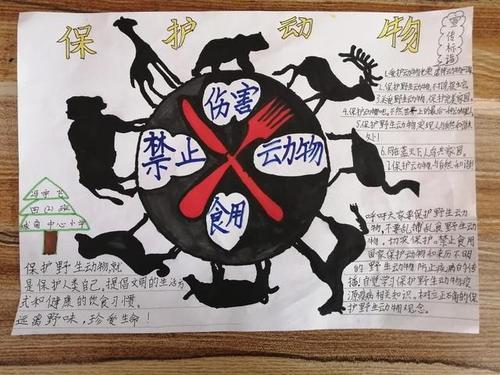 保护动物
宣传标语
伤害
禁止
云动物
食用
2.保护野生动物
5.保护野生动物实现人与自然和谐
6.同在蓝天下人鸟共家园。
7.保护云动物与自然和谐
四(2)班
中心小学
保护野生动物,就
是保护人类自己,提倡文明的生活方
式和健康的饮食习惯。
远离野味,珍爱生命!
呼吁大家来保护野生动
物,不要乱捕乱食野生动
物,切实保护。禁止食用
国家保护动物和来历不明
的野生动物防止疾病的传
播!自觉学习保护野生动物疫
源疫病相关知识。树立正确的保
护野生动物观念。